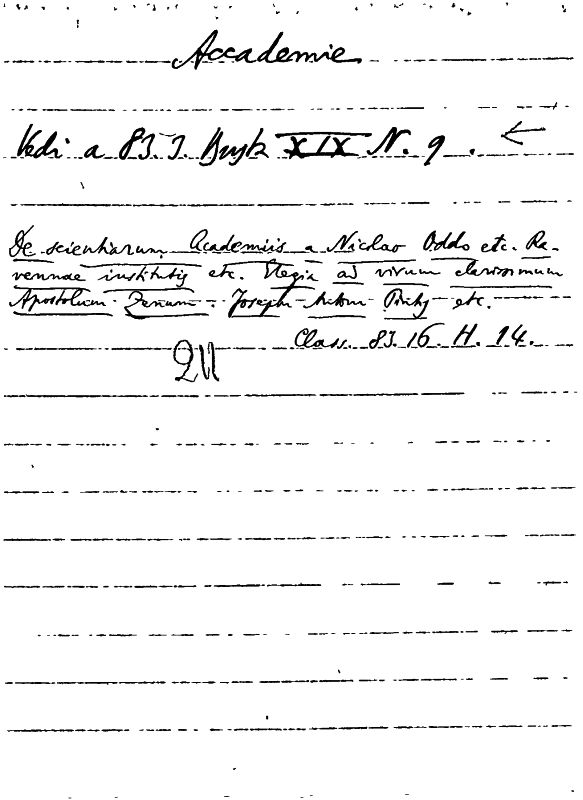 Accademie
Vedi a 83. I. Busta XIX N. 9.
De scientiarum Academiis a Niclao Oddo etc. Ra-
vennae institutis etc. Elegia ad virum clarissimum
Apostolum Zenum. Joseph Anton Pinthj etc.
Class. 83. 16. H. 14.